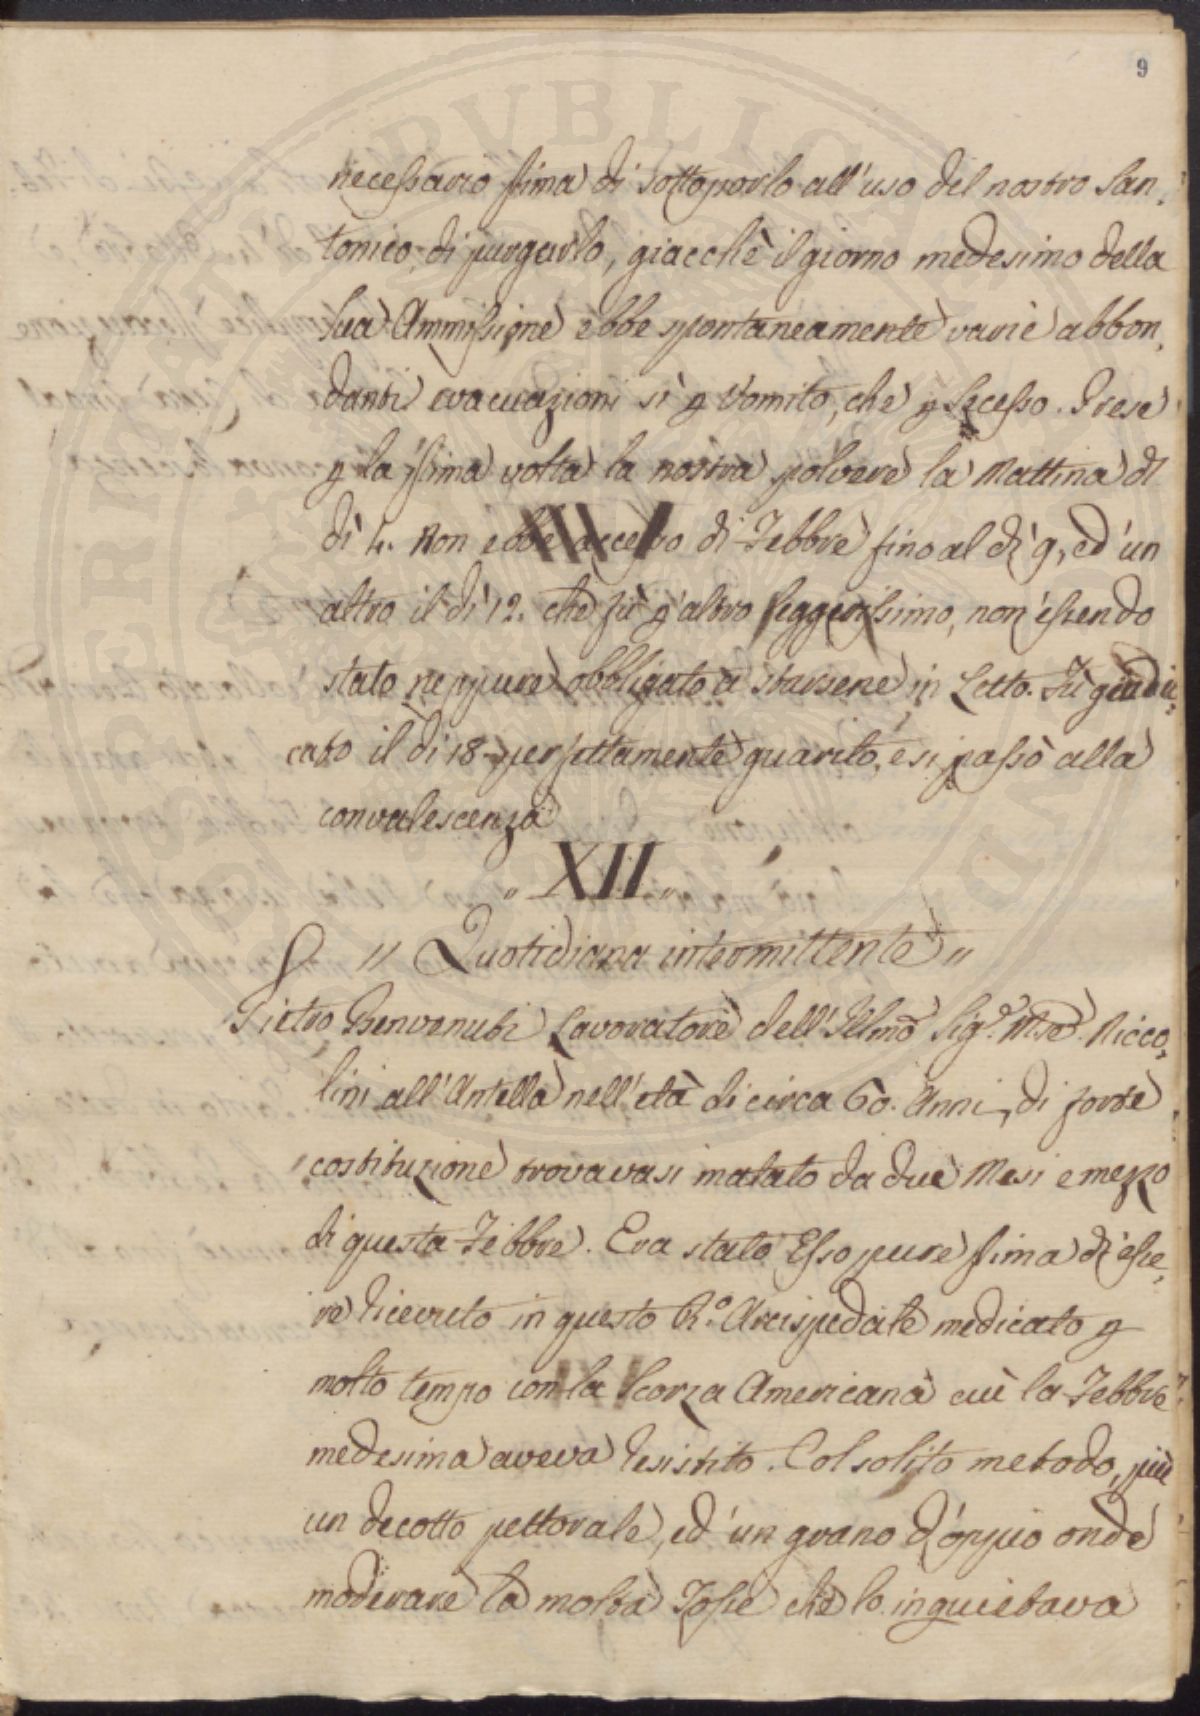 9
necessario pṕima di Sottoporlo all'uso del nostro San,
tonico, di purgarlo, giacchè il giorno medesimo della
Sua Ammissione ebbe spontaneamente varie abbon,
danti evacuazioni sì p Vomito, che p Secesso. Prese
p la pṕima volta la nostra polvere la Mattina dl
dì 4. Non ebbe accesso di Febbre fino al dì 9, ed'un
altro il dì 12. che fù p altro leggerissimo, non'essendo
stato neppure obbligato a starsene in Letto. Fù giudi,
cato il dì 18 perfettamente guarito, e si passò alla
convalescenza
„ XII „
8. „ Quotidiana intermittente „
Pietro Benvenuti Lavoratore dell'Illmo Sigr. Mse. Ricco,
lini all'Antella nell'età di circa 60. Anni, di forte
costituzione trovavasi malato da due Mesi e mezzo
di questa Febbre. Era stato Esso pure pṕima di esse,
re ricevuto in questo Ro. Arcispedale medicato p
molto tempo con la Scorza Americana cui la Febbre
medesima aveva resistito. Col solito metodo, più
un decotto pettorale, ed'un grano d'oppio onde
moderare la molta Tosse che lo inquietava